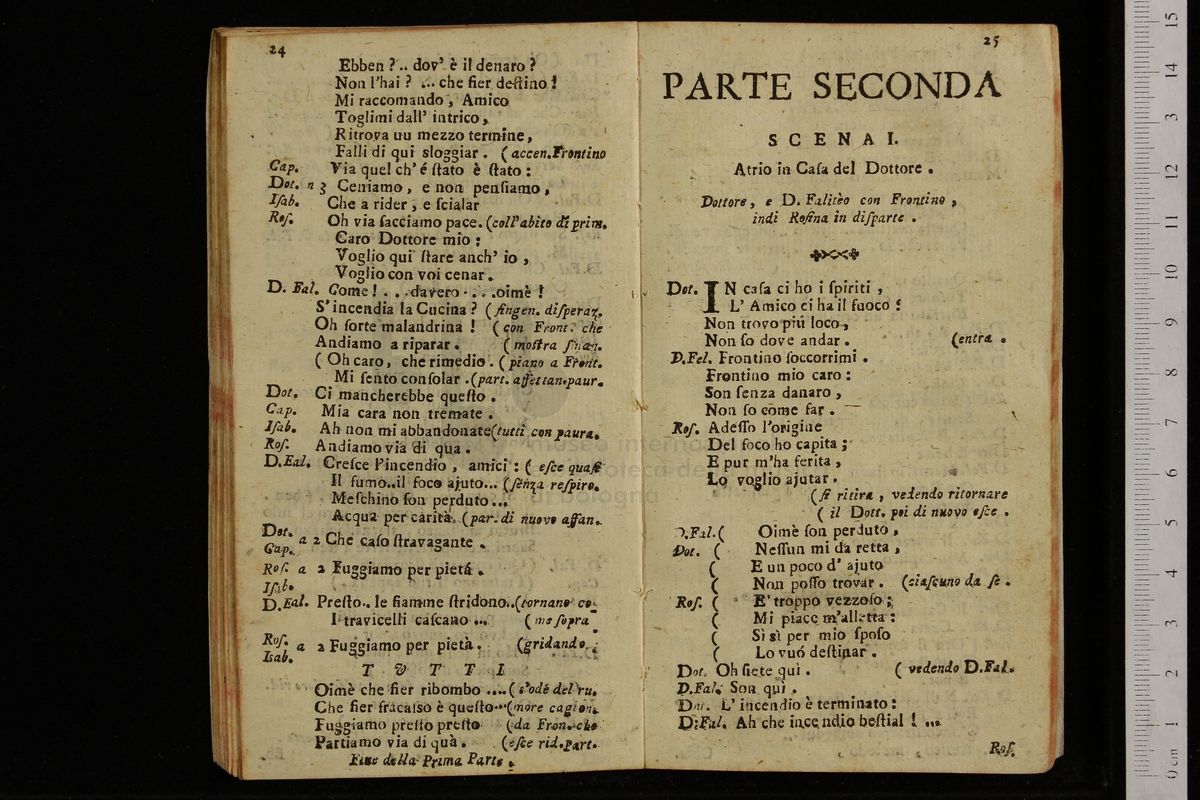 24
Ebben ? .. dov' è il denaro ?
Non l'hai ? ... che fier deſtino !
Mi raccomando , Amico
Toglimi dall' intrico ,
Ritrova uu mezzo termine ,
Falli di qui sloggiar . ( accen.Frontino
Cap. Via quel ch' é ſtato è ſtato :
Dot. n 3 Ceniamo , e non penſiamo ,
Iſab. Che a rider , e ſcialar
Roſ. Oh via facciamo pace. (coll'abito di prim.
Caro Dottore mio :
Voglio qui ſtare anch' io ,
Voglio con voi cenar .
D. Fal. Come ! . . . davero . . . .oimè !
S' incendia la Cucina ? ( fingen. diſperaz.
Oh ſorte malandrina ! ( con Front. che
Andiamo a riparar . ( moſtra
( Oh caro , che rimedio . ( piano a Front.
Mi ſento conſolar .(part. affettan.paur.
Dot. Ci mancherebbe queſto .
Cap. Mia cara non tremate .
Iſab. Ah non mi abbandonate(tutti con paura.
Roſ. Andiamo via di qua .
D.Fal. Creſce l'incendio , amici : ( eſce quaſi
Il fumo..il foco ajuto... (ſenza reſpiro.
Meſchino ſon perduto...
Acqua per carità. (par. di nuovo affan.
Dot.
Cap. a 2 Che caſo ſtravagante .
Roſ. a 2 Fuggiamo per pietá .
Iſab.
D.Fal. Preſto.. le fiamme ſtridono..(tornano co-
I travicelli caſcano ... ( me ſopra
Roſ. a 2 Fuggiamo per pietà. (gridando.
Isab.
T V T T I
Oimè che fier ribombo ....( s'ode del ru.
Che fier fracaſſo è queſto...(more cagion.
Fuggiamo preſto preſto (da Fron. che
Partiamo via di quà . (eſce rid.part.
Fine della Prima Parte .
25
PARTE SECONDA
SCENA I.
Atrio in Caſa del Dottore .
Dottore , e D. Falitèo con Frontino ,
indi Roſina in diſparte .
Dot. IN caſa ci ho i ſpiriti ,
L' Amico ci ha il fuoco :
Non trovo piú loco ,
Non ſo dove andar . (entra .
D.Fel. Frontino ſoccorrimi .
Frontino mio caro :
Son ſenza danaro ,
Non ſo come far .
Roſ. Adeſſo l'origine
Del foco ho capita ;
E pur m'ha ferita ,
Lo voglio ajutar .
(ſi ritira , vedendo ritornare
( il Dott. poi di nuovo eſce .
D.Fal.( Oimè ſon perduto ,
Dot. ( Neſſun mi da retta ,
( E un poco d' ajuto
( Non poſſo trovar . (ciaſcuno da ſe .
Roſ. ( E' troppo vezzoſo ;
( Mi piace m'alletta :
( Sì sì per mio ſpoſo
( Lo vuó deſtinar .
Dot. Oh ſiete qui . ( vedendo D.Fal.
D.Fal. Son qui .
Dot. L' incendio è terminato :
D.Fal. Ah che incendio beſtial ! ...
Roſ.